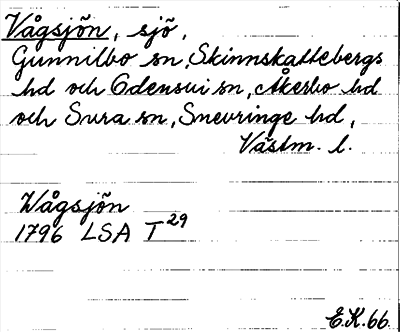 Vågsjön, sjö,
Gunnilbo sn, Skinnskattebergs
hd och Odensvi sn, Åkerbo hd
och Sura sn, Snevringe hd,
Västm. l.
Wågsjön
1796 LSA T 29
E.K. 66.